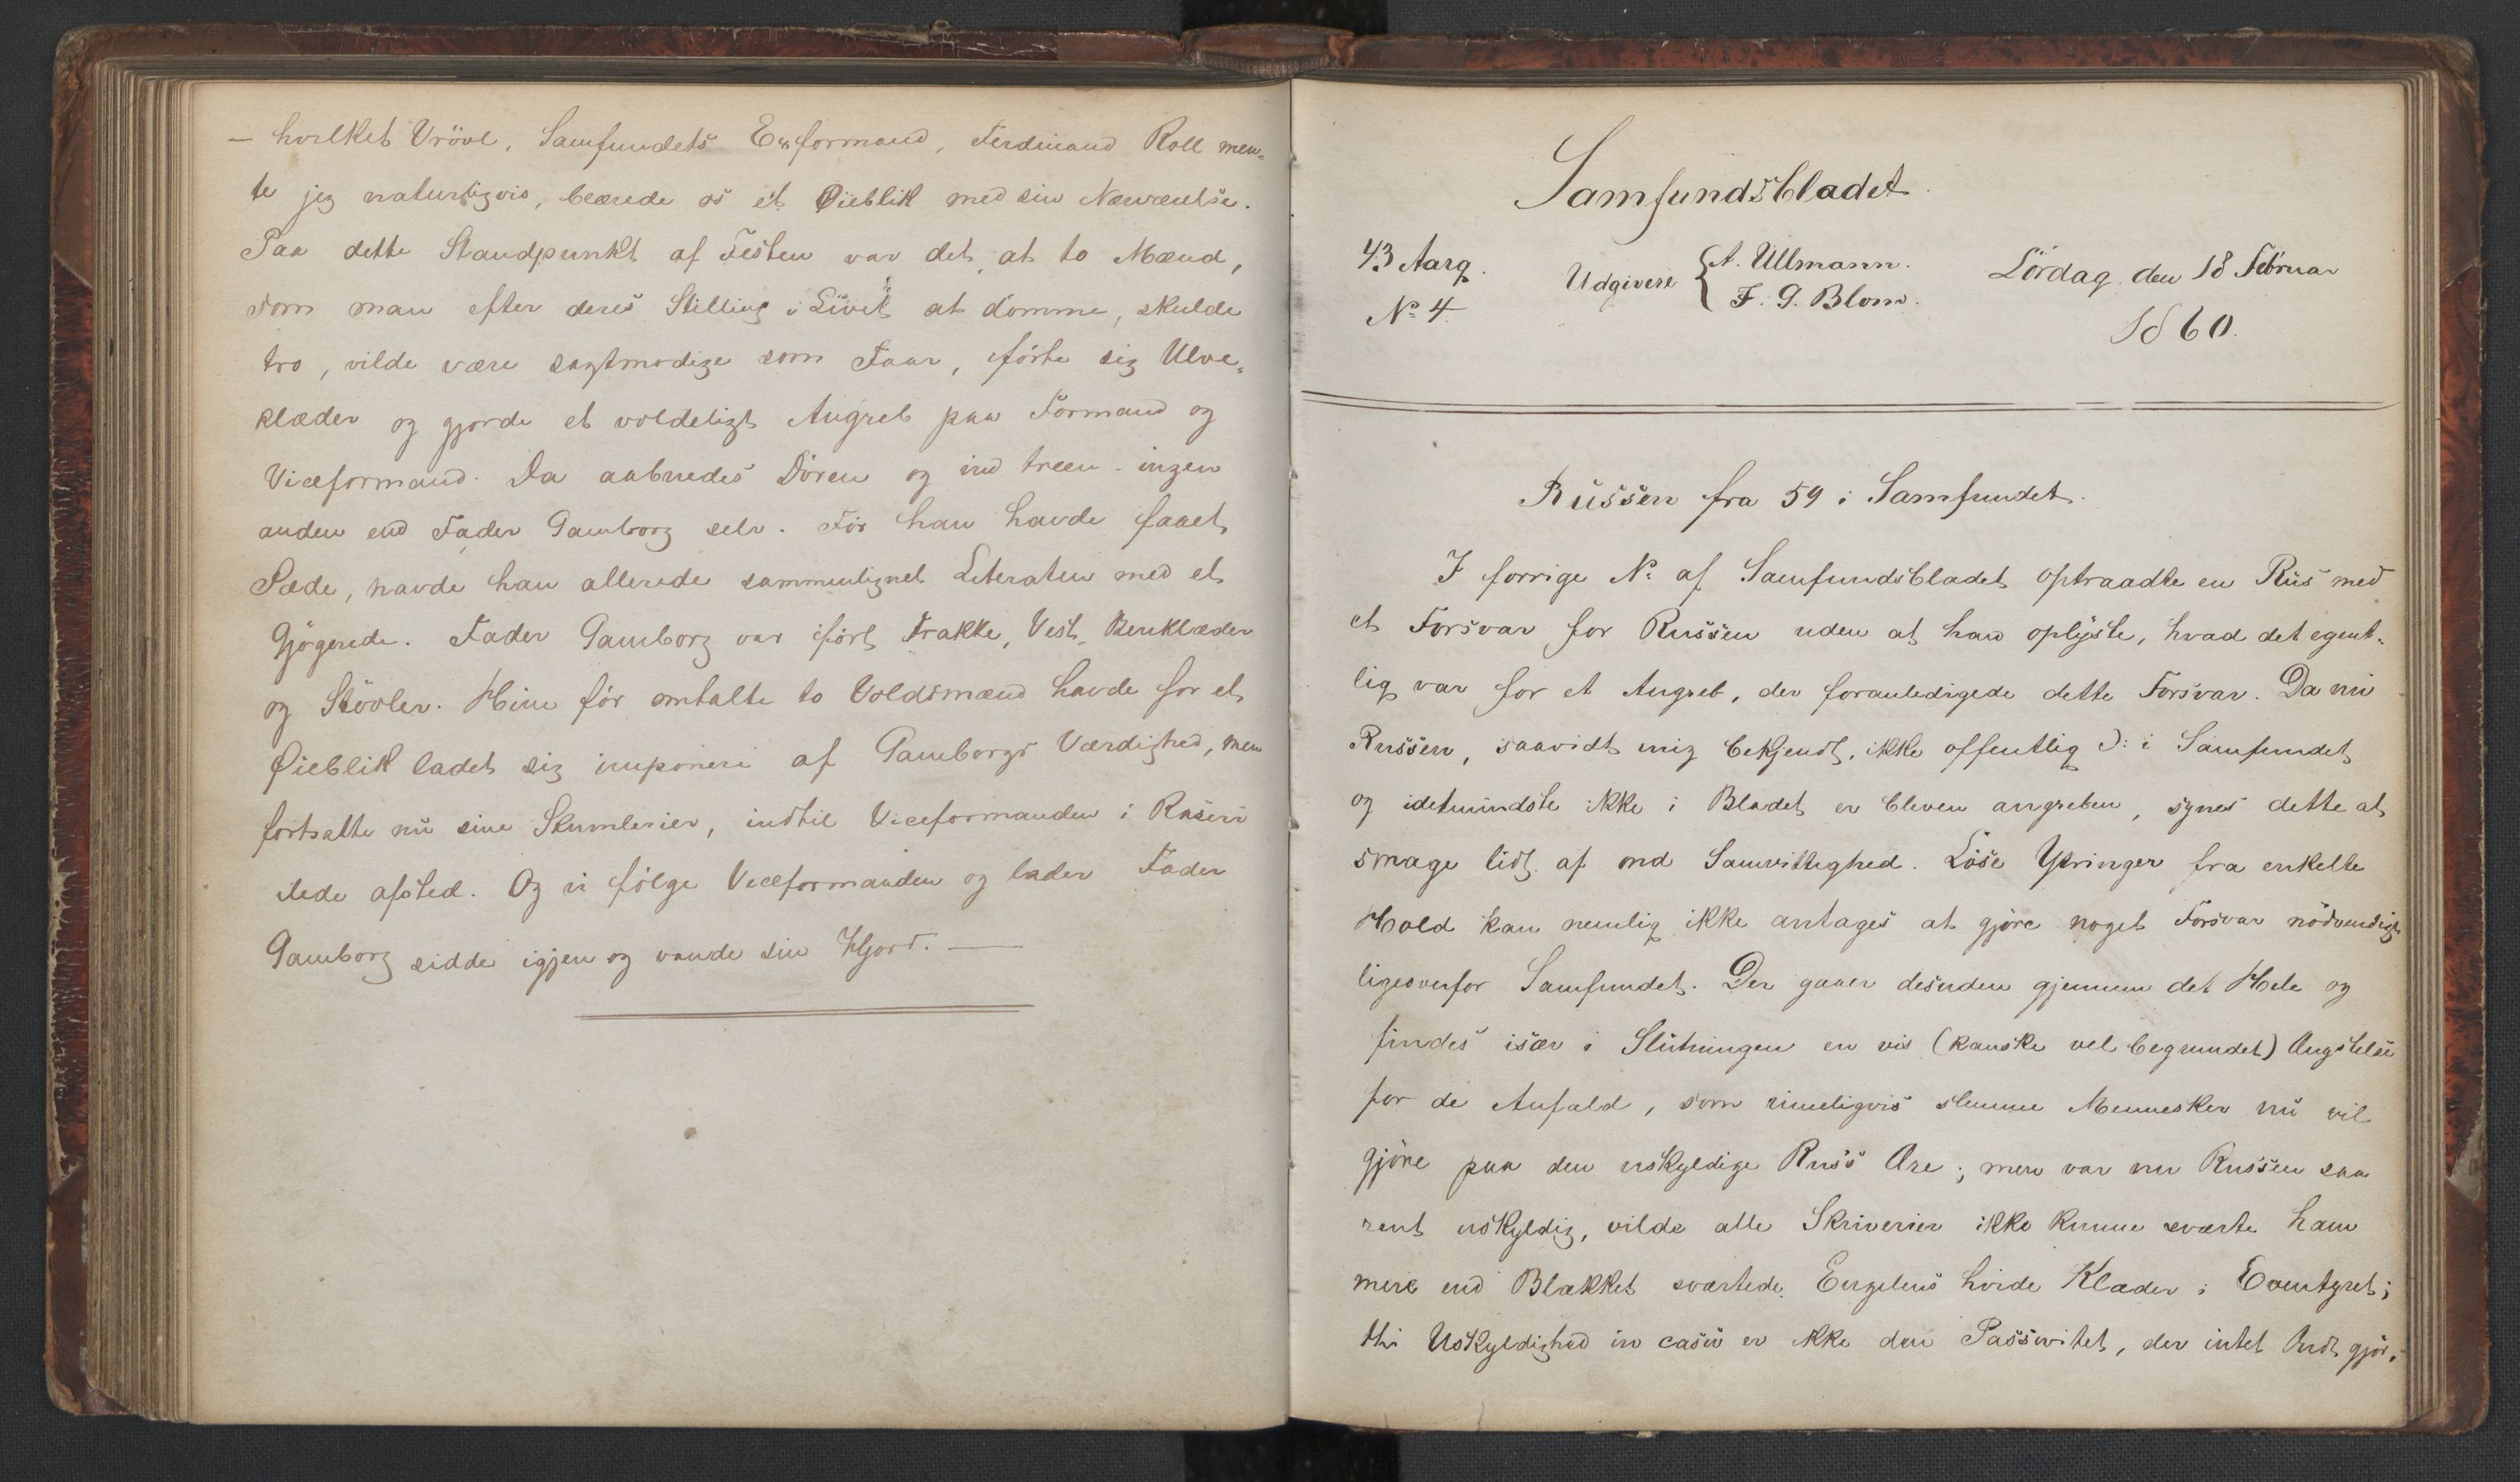 — hvilket Vrövl, Samfundets Exformand, Ferdinand Roll men-
te jeg naturligvis, beærede os et Øieblik med sin Nærværelse.
Paa dette Standpunkt af Festen var det, at to Mænd,
som man efter deres Stilling i Livet at dømme, skulde
tro, vilde være sagtmodige som Faar, iførte sig Ulve-
klæder og gjorde et voldeligt Angreb paa Formand og
Viceformand. Da aabnedes Dören og ind treen – ingen
anden end Fader Gamborg selv. För han havde faaet
Sæde, havde han allerede sammenlignet Literaten med et
Gjögerede. Fader Gamborg var ifört Frakke, Vest, Benklæder
og Stövler. Hine för omtalte to Voldsmænd havde for et
Øieblik ladet sig imponere af Gamborgs Værdighed, men
fortsatte nu sine Skumlerier, indtil Viceformanden i Raseri
ilede afsted. Og vi fölge Viceformanden og lader Fader
Gamborg sidde igjen og vande sin Hjord. —
Samfundsbladet.
43 Aarg.
No 4.
Udgivere { A. Ullmann.
F. G. Blom.
Lördag den 18 Februar
1860.
Russen fra 59 i Samfundet.
I forrige No: af Samfundsbladet optraadte en Rus med
et Forsvar for Russen uden at han oplyste, hvad det egent-
lig var for et Angreb, der foranledigede dette Forsvar. Da nu
Russen, saavidt mig bekjendt, ikke offentlig ɔ: i Samfundet
og idetmindste ikke i Bladet er bleven angreben, synes dette at
smage lidt af ond Samvittighed. Löse Ytringer fra enkelte
Hold kan nemlig ikke antages at gjöre noget Forsvar nödvendigt
ligeoverfor Samfundet. Der gaaer desuden gjennem det Hele og
findes især i Slutningen en vis (kanske vel begrundet) Ængstelse
for de Anfald, som rimeligvis slemme Mennesker nu vil
gjöre paa den uskyldige Russ Ære; men var nu Russen saa
rent uskyldig, vilde alle Skriverier ikke kunne sværte ham
mere end Blækket sværtede Engelens hvide Klæder i Eventyret;
thi Uskyldighed in casu er ikke den Passivitet, der intet Ondt gjör,